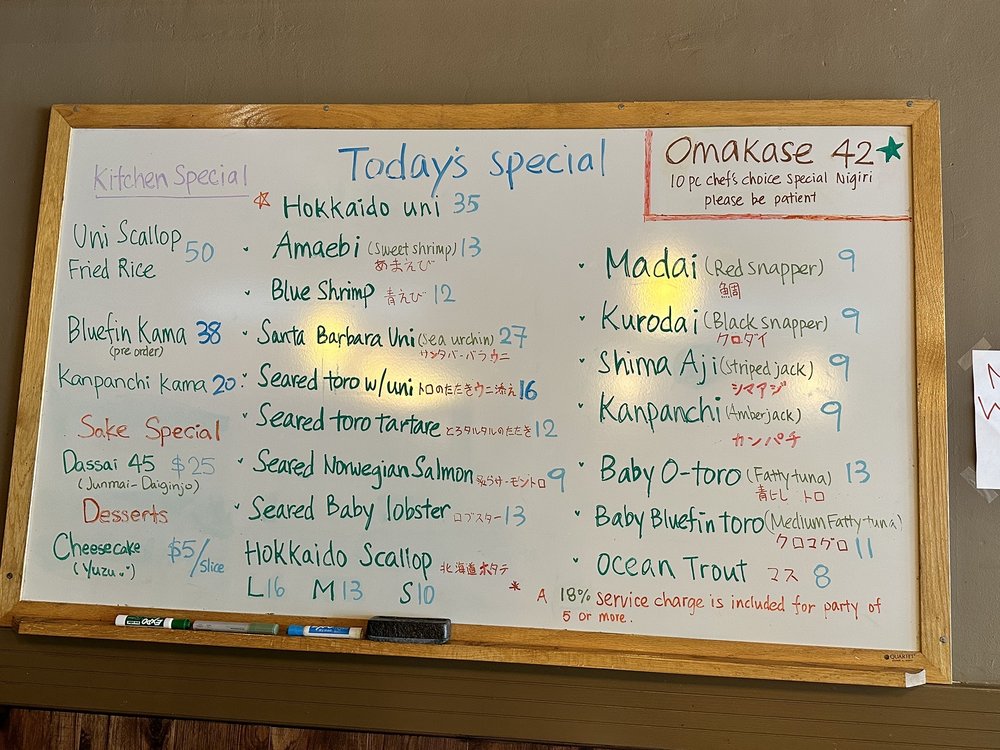 Today's special
Kitchen Special
Uni Scallop 50
Fried Rice
Bluefin Kama 38
(pre order)
Kanpanchi Kama 20
Sake Special
Dassai 45 $25
(Junmai-Daiginjo)
Desserts
Cheesecake $5/slice
(Yuzu)
Hokkaido uni 35
Amaebi (Sweet shrimp) 13
あまえび
Blue Shrimp 青えび 12
Santa Barbara Uni (Sea urchin) 27
サンタバーバラウニ
Seared toro w/uni トロのたたきウニ添え 16
Seared toro tartare とろタルタルのたたき 12
Seared Norwegian Salmon サーモントロ 9
Seared Baby lobster ロブスター 13
Hokkaido Scallop 北海道ホタテ
L16 M13 S10
Omakase 42
10 pc chef's choice special Nigiri
please be patient
Madai (Red snapper) 9
鯛
Kurodai (Black snapper) 9
クロダイ
Shima Aji (Striped jack) 9
シマアジ
Kanpanchi (Amberjack) 9
カンパチ
Baby O-toro (Fatty tuna) 13
トロ
Baby Bluefin toro (Medium Fatty tuna)
クロコグロ 11
Ocean Trout マス 8
* A 18% service charge is included for party of
5 or more.
EXPO
QUARTET